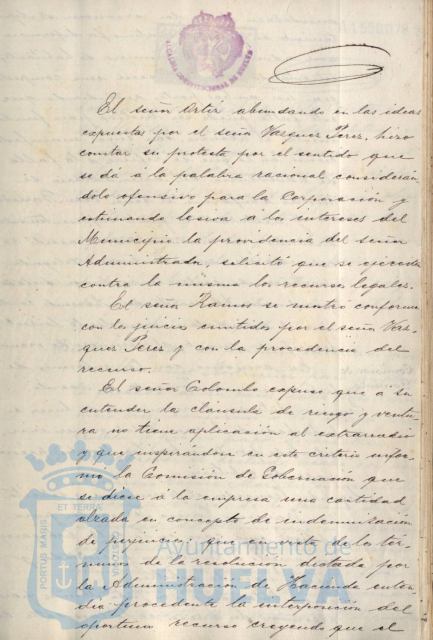 ALCALDIA CONSTITUCIONAL DE HUELVA
El señor Ortiz abundando en las ideas
expuestas por el señor Vazquez Perez, hizo
constar su protesta por el sentido que
se dá á la palabra racional considerán
dolo ofensivo para la Corporación y
estimando lesiva á los intereses del
Municipio la providencia del señor
Administrador, solicitó que se ejerciten
contra la misma los recursos legales.
El señor Ramos se mostró conforme
con los juicios emitidos por el señor Vaz-
quez Perez y con la procedencia del
recurso.
El señor Colombo expuso que á su
entender la cláusula de riesgo y ventu-
ra no tiene aplicación al extrarradio
y que inspirándose en este criterio infor-
mó la Comisión de Gobernación que
se diese á la empresa una cantidad
alzada en concepto de indemnización
de perjuicios: que en vista de los tér-
minos de la resolución dictada por
la Administración de Hacienda enten-
día procedente la interposición del
oportuno recurso creyendo que el
PORTUS MARIS
ET TERRÆ
Ayuntamiento de
HUELVA